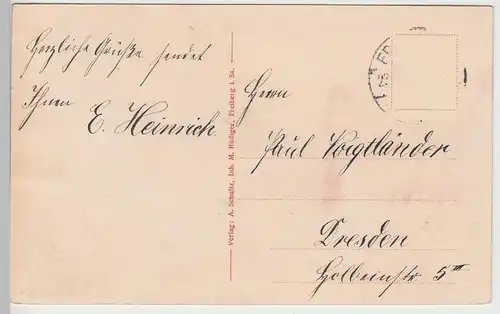 Herzliche Grüße sendet
Ihnen
E. Heinrich.
Verlag: A. Schultz, Inh. M. Rüdiger, Freiberg i. Sa.
Herrn
Paul Voigtländer
Dresden
Holbeinstr. 5 III